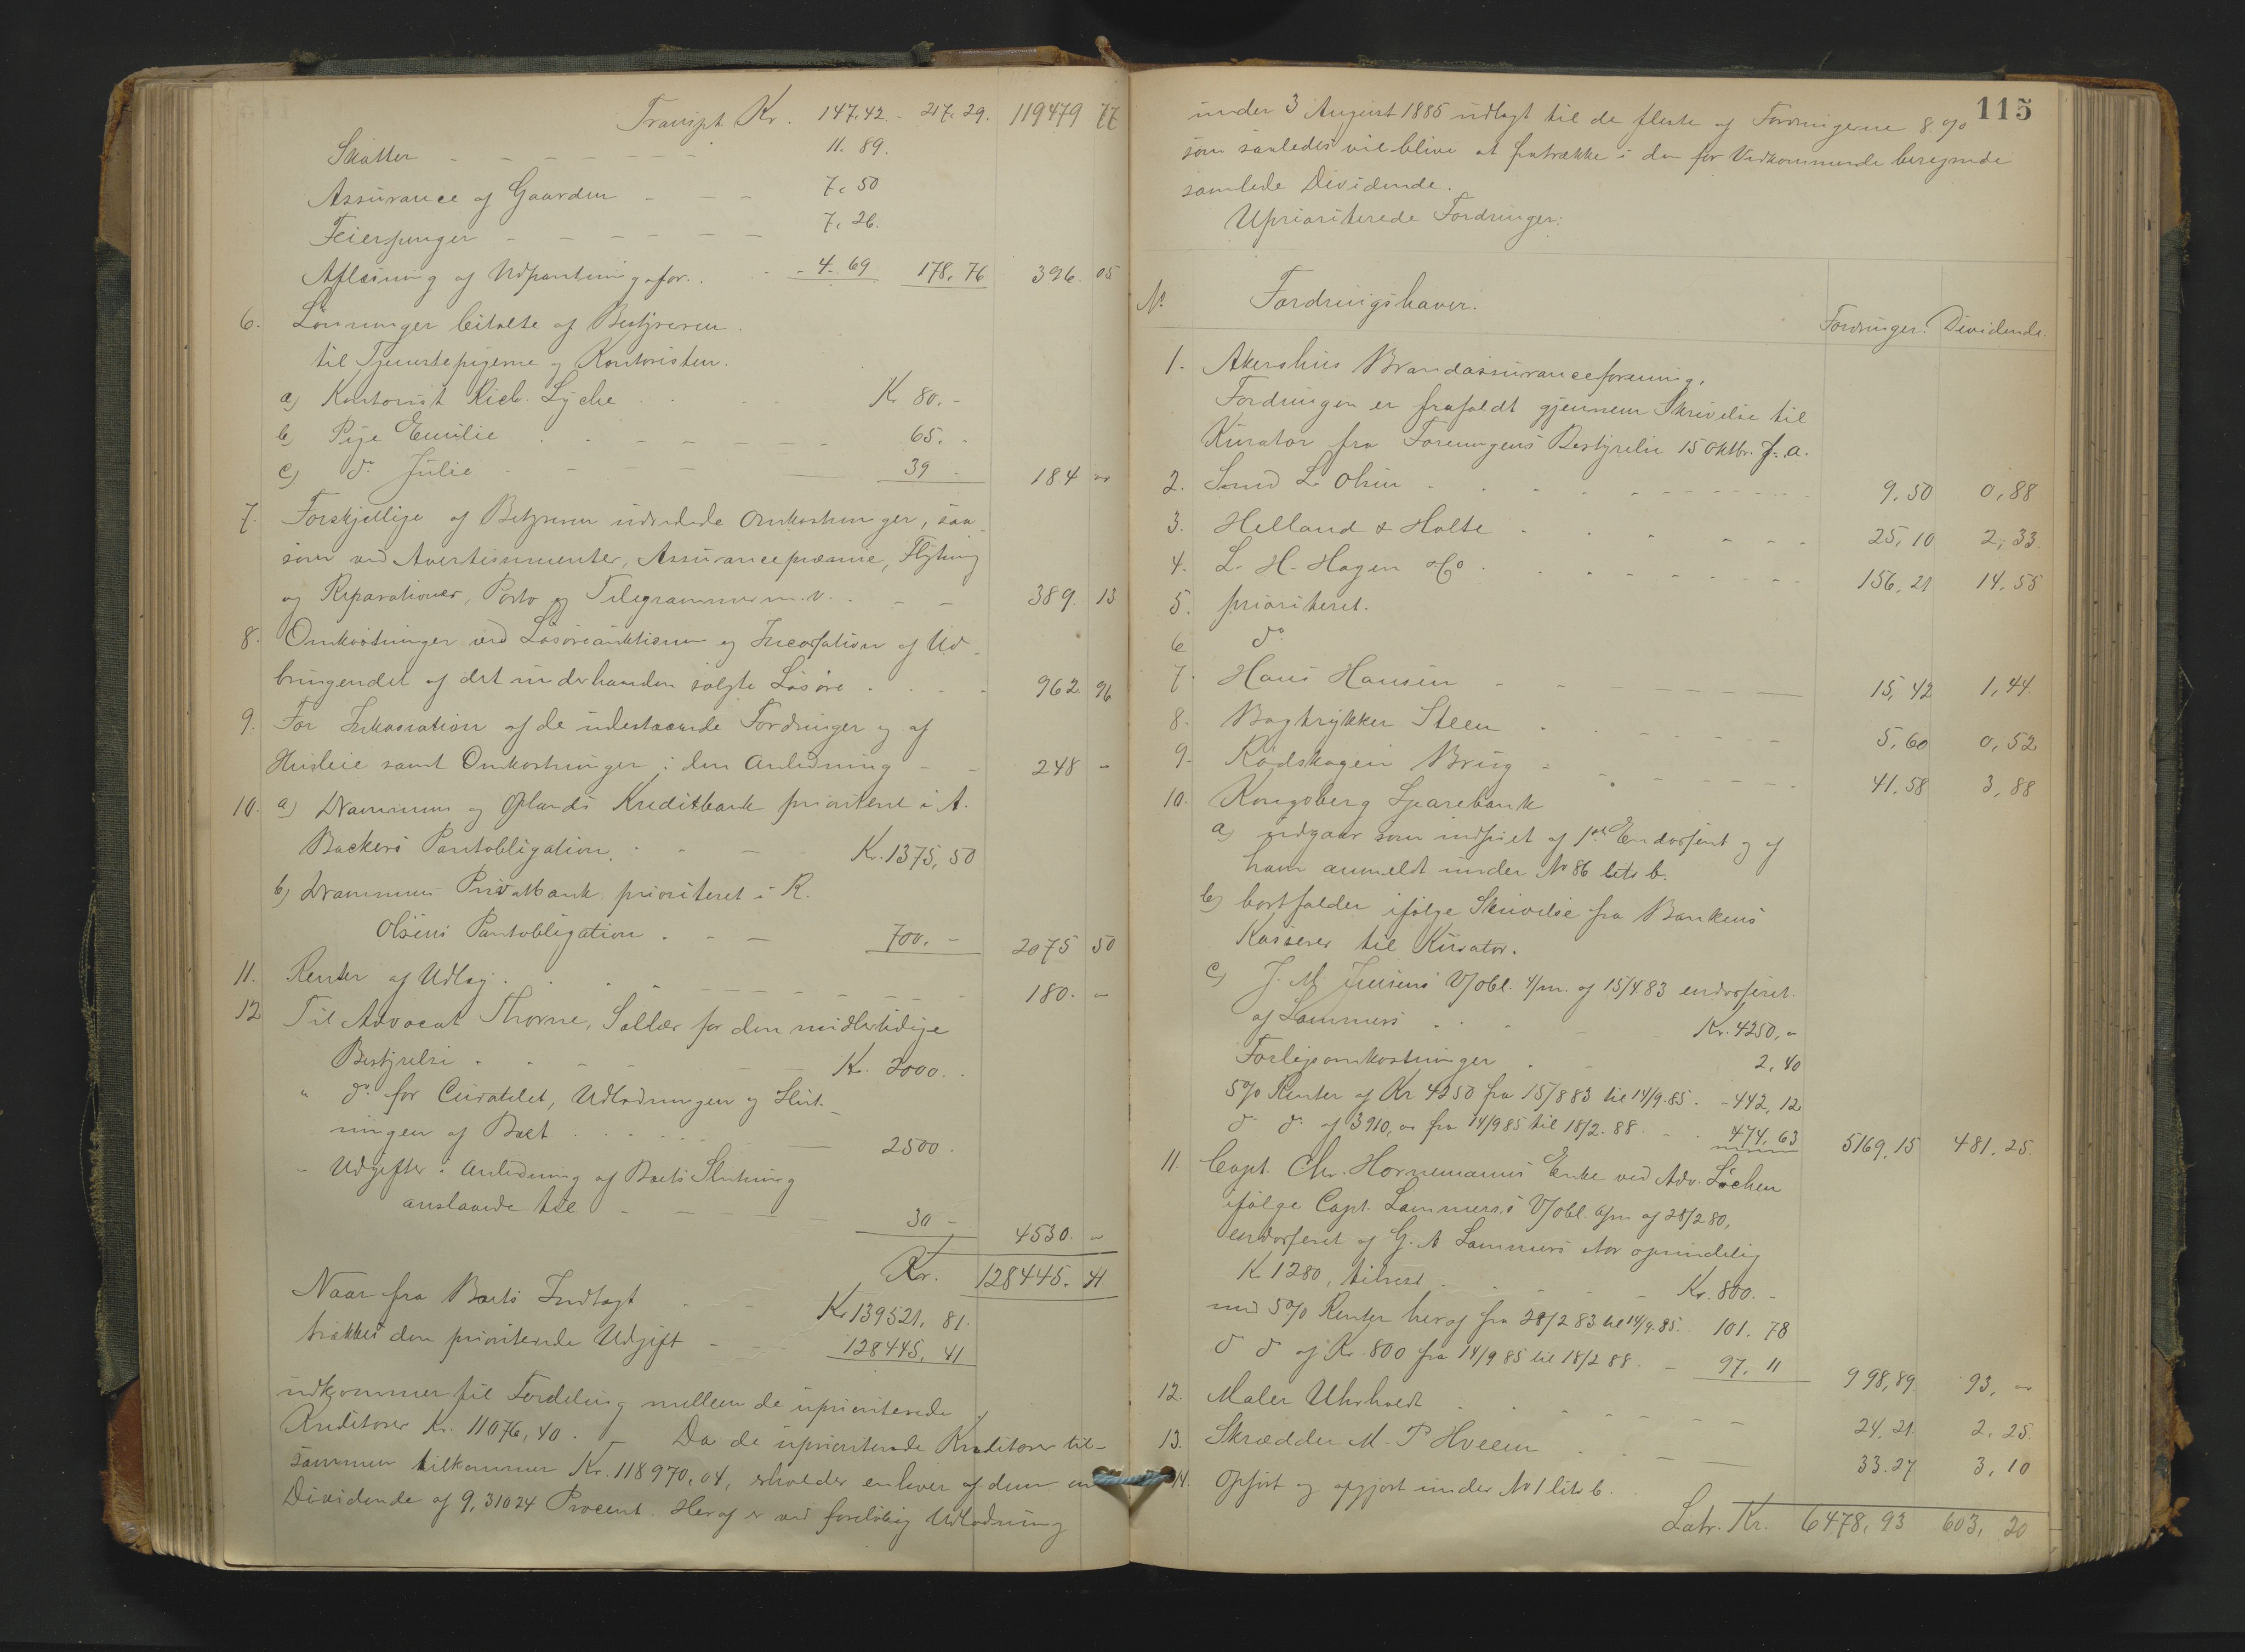 Transpt. Kr. 147,42. - 217,29. 119479 77
Skatter - - - - - - - 11. 89.
Assurance af Gaarden - - - 7, 50
Feierpenger - - - - - - 7, 26.
Afløsning af Udpantningsfor. . - 4. 69 178, 76 396. 05
6. Lønninger bitalte af Bestyreren
til Tjenestepigerne og Kontoristen.
a) Kontorist Rich. Lyche . . . Kr 80. -
b) Pige Emilie . - - - - - 65. -
c) do Julie - - - - 39 - 184 "
7. Forskjellige af Bestyreren udredede Omkostninger, saa-
som ved Avertissementer, Assurancepræmie, Flytning
og Reparationer, Porto og Telegrammer m. v. . - - 389. 13
8. Omkostninger ved Løsøreauktionen og Incassation af Ud-
bringendet af det underhaanden solgte Løsøre . . . . 962. 96
9. For Inkassation af de udestaaende Fordringer og af
Husleie samt Omkostninger i den Anledning - - 248 -
10. a) Drammens og Oplands Kreditbank prioriteret i A.
Backers Pantobligation. . - - Kr. 1375, 50
b) Drammens Privatbank prioriteret i R.
Olsens Pantobligation . - - 700. - 2075 50
11. Renter af Udlæg . . . - - - - - - 180. "
12 Til Advocat Thorne, Sallær for den midlertidige
Bestyrelse . - - - - - Kr. 2000. .
" do for Curatelet, Udlodningen og Slut-
ningen af Boet . . . . . - 2500.
- Udgifter i Anledning af Boets Slutning
anslaaede til - - - - - 30 - 4530. "
Kr. 128445. 41
Naar fra Boets Indtægt - - Kr 139521, 81.
trækkes den prioriterede Udgift - - 128445, 41
udkommer til Fordeling mellem de uprioriterede
Kreditorer Kr. 11076, 40. - Da de uprioriterede Kreditorer til-
sammen tilkommer Kr. 118970, 04, erholder enhver af dem en
Dividende af 9, 31024 Procent. Heraf er ved foreløbig Udlodning
115
under 3 August 1885 udlagt til de fleste af Fordringerne 8 %
som saaledes vil blive at fratrække i den for Vedkommende beregnede
samlede Dividende.
Uprioriterede Fordringer:
No Fordringshaver. Fordringer. Dividende.
1. Akershus Brandassuranceforening,
Fordringen er frafaldt gjennem Skrivelse til
Kurator fra Foreningens Bestyrelse 15 Oktbr. f. a.
2. Smed L. Olsen . . . . . - - - - 9, 50 0, 88
3. Helland & Holte . . . - - - 25, 10 2, 33.
4. L. H. Hagen & Co . . . - - - - 156, 21 14, 55
5. prioriteret.
6 do
7. Hans Hansen - - - - - - - 15, 42 1, 44
8. Bogtrykker Steen . . - - - - 5, 60 0, 52
9. Rødskogen Brug - . - - - - 41, 58 3, 88
10. Kongsberg Sparebank
a) udgaar som indfriet af 1ste Endossent og af
ham anmeldt under No 86 lits b.
b) bortfalder ifølge Skrivelse fra Bankens
Kasserer til Kurator.
c) J. M. Jensens V/obl. 4/m. af 15/4 83 endosseret
af Lammers . . . - Kr. 4250, "
Forligsomkostninger . - 2, 40
5% Renter af Kr 4250 fra 15/8 83 til 14/9. 85. - 442, 12
do do af 3910, " fra 14/9 85 til 18/2. 88. - . 474, 63 5169, 15 481, 25.
11. Capt. Chr. Hornemanns Enke ved Adv. Løchen
ifølge Capt. Lammers's V/obl. 6/m af 28/2 80,
endosseret af G. A Lammers stor oprindelig
Kr 1280, tilrest . . . - - Kr. 800. -
med 5% Renter heraf fra 28/2 83 til 14/9. 85. 101. 78
do do af Kr. 800 fra 14/9 85 til 18/2 88. - 97. 11 998, 89 93, "
12. Maler Uhrholdt . . . - - - - 24, 21 2, 25.
13. Skrædder M. P Hveem . . . - - 33. 27 3, 10
14. Opført og opgjort under No 1 lits b. .
Latr. Kr. 6478, 93 603, 20